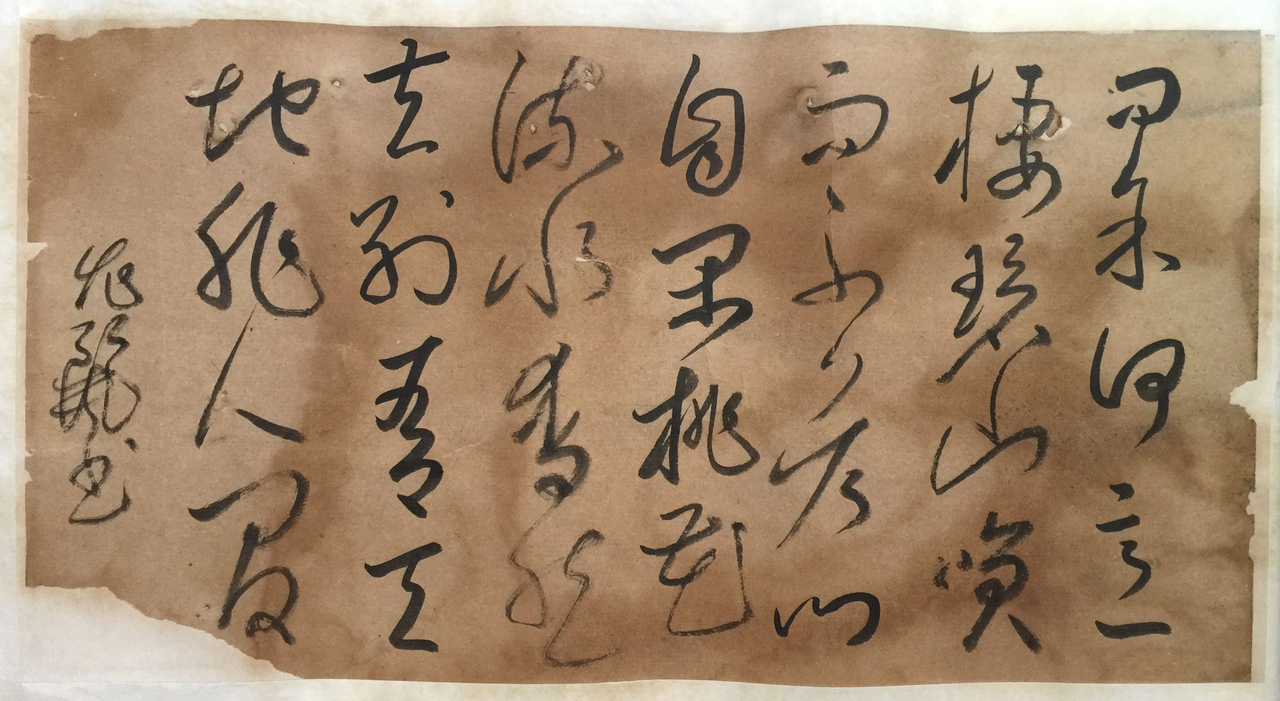 問余何意
棲碧山笑
而不答心
自閑桃花
流水杳然
去別有天
地非人間
書